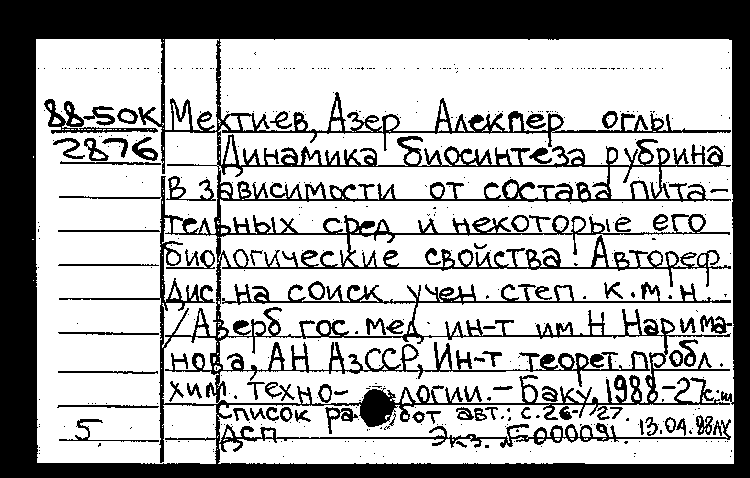 88-50К Мехтиев, Азер Алекпер оглы
2876 Динамика биосинтеза рубрина
в зависимости от состава пита-
тельных сред и некоторые его
биологические свойства: Автореф.
дис. на соиск. учен. степ. к.м.н.
/Азерб. гос. мед. ин-т им. Н. Нарима-
нова, АН АзССР, Ин-т теорет. пробл.
хим. техно- логии.-Баку, 1988.-27с.:
Список ра- бот авт.: с.26-27.
5. ДСП. Экз. №000091. 13.04.88